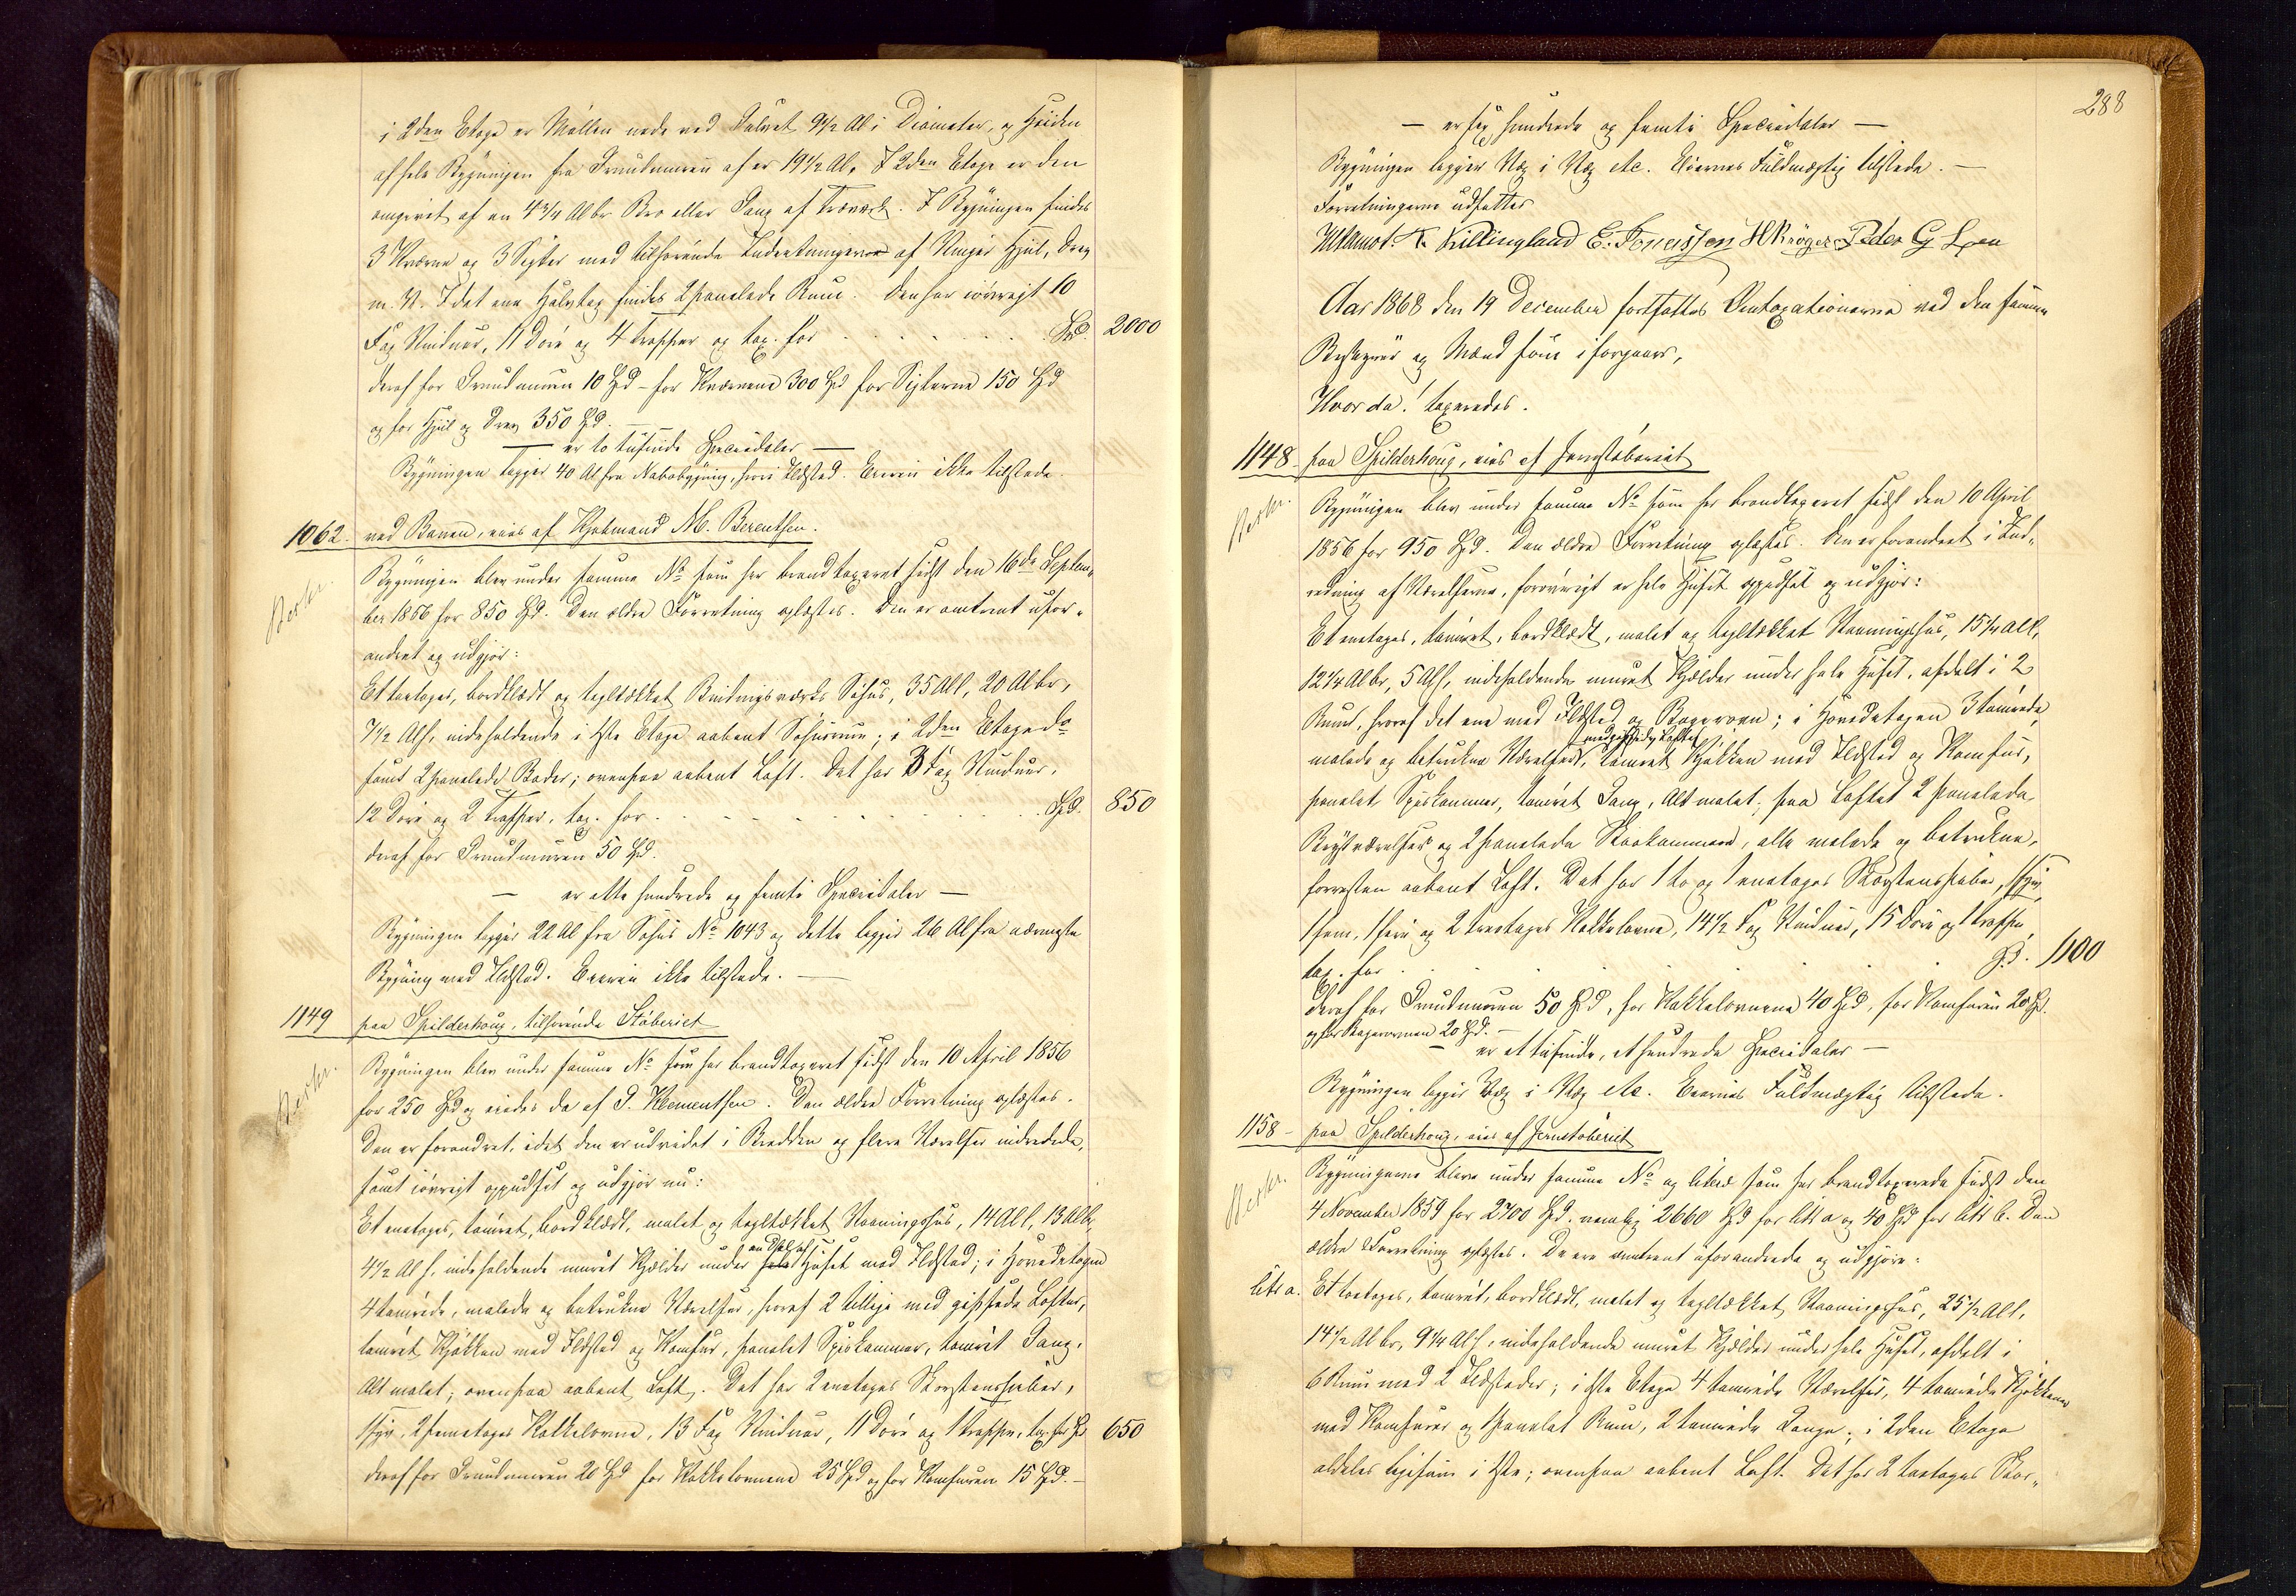 i 2den Etage er Møllen nede ved Gulvet 9½ Al i Diameter, og Høiden
af hele Bygningen fra Grundmuren af er 19½ Al. I 2den Etage er den
omgivet af en 4¾ Al br Bro eller Gang af Træværk. I Bygningen findes
3 Kværne og 3 Sigter med tilhørende Indretninger af Vinger Hjul, Drev
m. V. I det ene Halvtag findes 2 panelede Rum. Den har iøvrigt 10
Fag Vinduer, 11 Døre og 4 Trapper og tax. for . . . . . . . Spd. 2000
deraf for Grundmuren 10 Spd – for Kværnene 300 Spd for Sigterne 150 Spd
og for Hjul og Drev 350 Spd. –
— er to tusinde Speciedaler —
Bygningen ligger 40 Al fra Nabobygning, hvori Ildsted. Eieren ikke tilstede.
1062. ved Banen, eies af Kjøbmand M. Berentsen.
Beskr.
Bygningen blev under samme No som her brandtaxeret sidst den 16de Septem-
ber 1856 for 850 Spd. Den ældre Forretning oplæstes. Den er omtrent ufor-
andret og udgjør:
Et toetages, bordklædt og tegltækket Bindingsværks Søhus, 35 Al l, 20 Al br,
7½ Al h, indeholdende i 1ste Etage aabent Søhusrum; i 2den Etage do
samt 2 panelede Boder; ovenpaa aabent Loft. Det har 3 Fag Vinduer,
12 Døre og 2 Trapper, tax. for . . . . . . . . . Spd. 850
deraf for Grundmuren 50 Spd.
— er otte hundrede og femti Speciedaler —
Bygningen ligger 22 Al fra Søhus No 1043 og dette ligger 26 Al fra nærmeste
Bygning med Ildsted. Eieren ikke tilstede. —
1149 paa Spilderhoug, tilhørende Støberiet
Beskr.
Bygningen blev under samme No som her brandtaxeret sidst den 10 April 1856
for 250 Spd og eiedes da af P. Klementsen. Den ældre Forretning oplæstes.
Den er forandret, idet den er udvidet i Bredden og flere Værelser indredede,
samt iøvrigt oppudset og udgjør nu:
Et enetages, tømret, bordklædt, malet og tegltækket Vaaningshus, 14 Al l, 13 Al br,
4½ Al h, indeholdende muret Kjælder under en Deel af Huset med Ildsted; i Hovedetagen
4 tømrede, malede og betrukne Værelser, hvoraf 2 tillige med gipsede Lofter,
tømret Kjøkken med Ildsted og Komfur, panelet Spiskammer, tømret Gang.
Alt malet; ovenpaa aabent Loft. Det har 2 enetages Skorstenspiber,
1 Fyr, 2 femetages Kakkelovne, 13 Fag Vinduer, 11 Døre og 1 Trappe, tax. for Spd 650
deraf for Grundmuren 20 Spd for Kakkelovnene 25 Spd og for Komfuren 15 Spd. –
288
— er sex hundrede og femti Speciedaler —
Bygningen ligger Væg i Væg etc. Eiernes Fuldmægtig tilstede. —
Forretningerne udsattes
T. Killingland E. Tonassen H Krøger Peder G
Aar 1868 den 19 December fortsattes Omtaxationerne ved den samme
Bestyrer og Mænd som iforgaars,
Hvor da! taxeredes.
1148 – paa Spilderhoug, eies af Jernstøberiet
Beskr.
Bygningen blev under samme No som her brandtaxeret sidst den 10 April
1856 for 950 Spd. Den ældre Forretning oplæstes. Den er forandret i Ind-
redning af Værelserne, forøvrigt er hele Huset oppudset og udgjør:
Et enetages, tømret, bordklædt, malet og tegltækket Vaaningshus, 15¼ Al l,
12¼ Al br, 5 Al h, indeholdende muret Kjælder under hele Huset, afdelt i 2
Rum, hvoraf det ene med Ildsted og Bagerovn; i Hovedetagen 3 tømrede,
malede og betrukne Værelser, med gipsede Lofter, tømret Kjøkken med Ildsted og Komfur,
panelet Spiskammer, tømret Gang, Alt malet; paa Loftet 2 panelede
Kvistværelser og 2 panelede Skraakammere, alle malede og betrukne,
forresten aabent Loft. Det har 1 to og 1 enetages Skorstenspiber, 1 Fyr,
1 fem, 1 fire og 2 treetages Kakkelovne, 14½ Fag Vinduer, 15 Døre og 1 Trappe,
tax. for . . . . . . Spd. 1100
deraf for Grundmuren 50 Spd, for Kakkelovnene 40 Spd, for Komfuren 20 Spd.
og for Bagerovnen 20 Spd. –
er et tusinde, et hundrede Speciedaler —
Bygningen ligger Væg i Væg etc. Eiernes Fuldmægtig tilstede.
1158 – paa Spilderhoug, eies af Jernstøberiet
Beskr.
Bygningerne bleve under samme No og litra som her brandtaxerede sidst den
4 November 1859 for 2700 Spd. nemlig 2660 Spd for litr a og 40 Spd for litr b. Den
ældre Forretning oplæstes. De ere omtrent uforandrede og udgjøre:
litr a. Et toetages, tømret, bordklædt, malet og tegltækket Vaaningshus, 25½ Al l,
14½ Al br, 9¼ Al h, indeholdende muret Kjælder under hele Huset, afdelt i
6 Rum med 2 Ildsteder; i 1ste Etage 4 tømrede Værelser, 4 tømrede Kjøkkener
med Komfurer og 1 panelet Rum, 2 tømrede Gange; i 2den Etage
aldeles ligesom i 1ste; ovenpaa aabent Loft. Det har 2 toetages Skor-